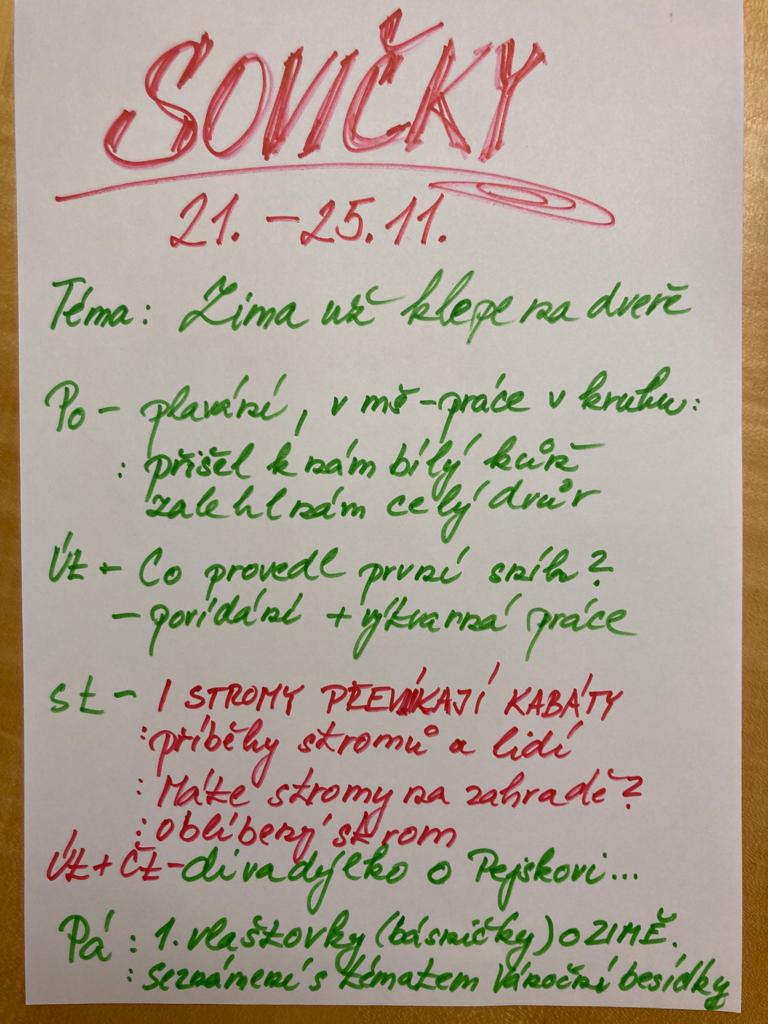 SOVIČKY
21. - 25.11.
Téma: Zima už klepe na dveře
Po - plavání, v mš - práce v kruhu:
: přišel k nám bílý kůň
zalehl nám celý dvůr
Út - Co provedl první sníh?
- povídání + výtvarná práce
st - I STROMY PŘEVLÍKAJÍ KABÁTY
: příběhy stromů a lidí
: Máte stromy na zahradě?
: oblíbený strom
Út + Čt - divadýlko o Pejskovi...
Pá: 1. vlaštovky (básničky) o ZIMĚ.
: seznámení s tématem Vánoční besídky